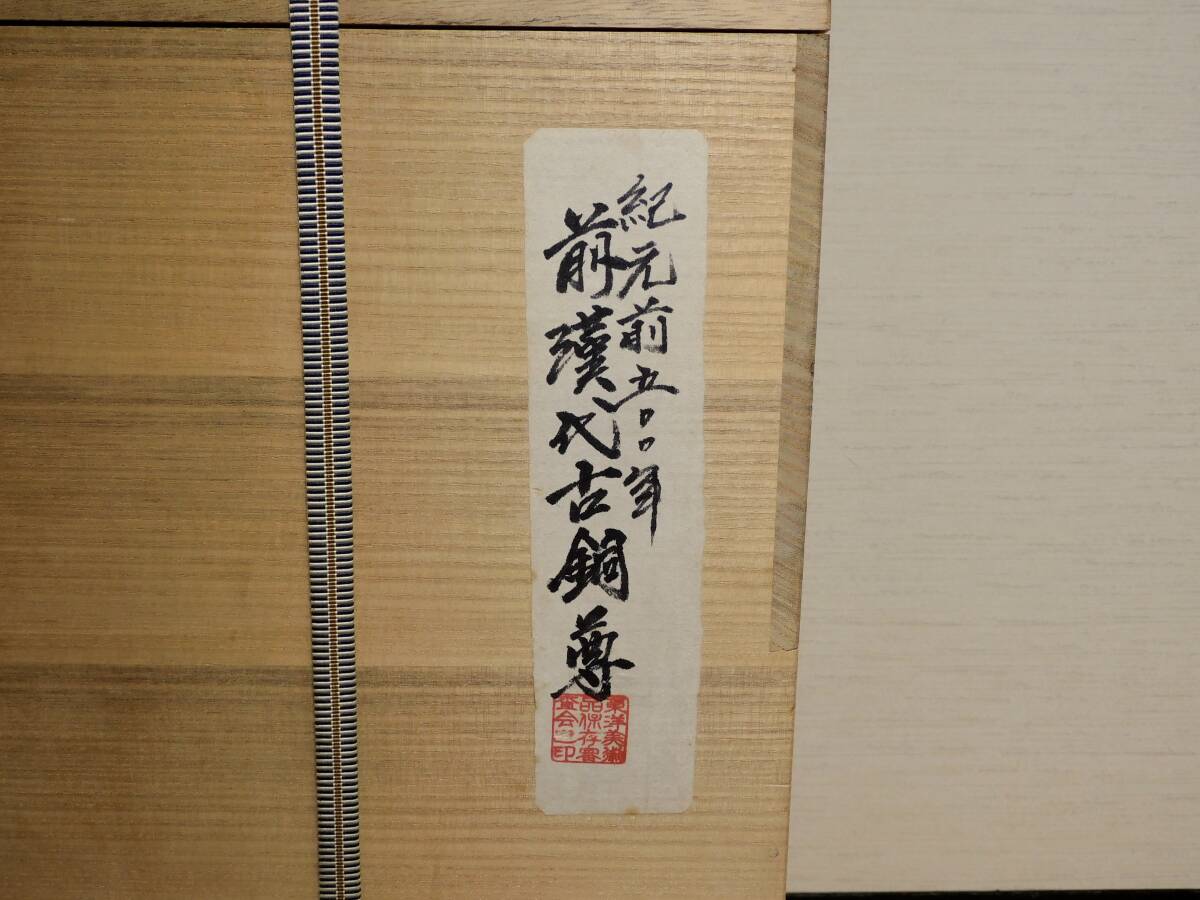 紀元前五〇〇年
前漢代古銅尊
東洋美術
品保存審
査会之印